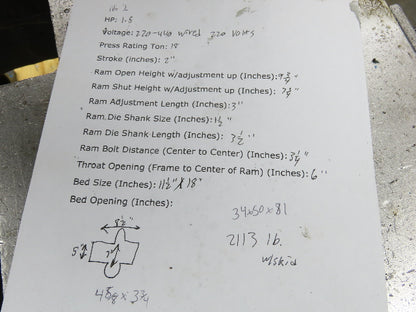 HP: 1.5
Voltage: 220-440 wired 220 Volts
Press Rating Ton: 18
Stroke (inches): 2"
Ram Open Height w/adjustment up (Inches): 9 3/4"
Ram Shut Height w/adjustment up (Inches): 7 3/4"
Ram Adjustment Length (Inches): 3"
Ram Die Shank Size (Inches): 1 1/2"
Ram Die Shank Length (Inches): 3 1/2"
Ram Bolt Distance (Center to Center) (Inches): 3 1/4"
Throat Opening (Frame to Center of Ram) (Inches): 6"
Bed Size (Inches): 11 1/2" X 18"
Bed Opening (Inches):
8 1/2"
34x50x81
5"
7"
2113 lb.
w/skid
4 5/8 x 3 3/4